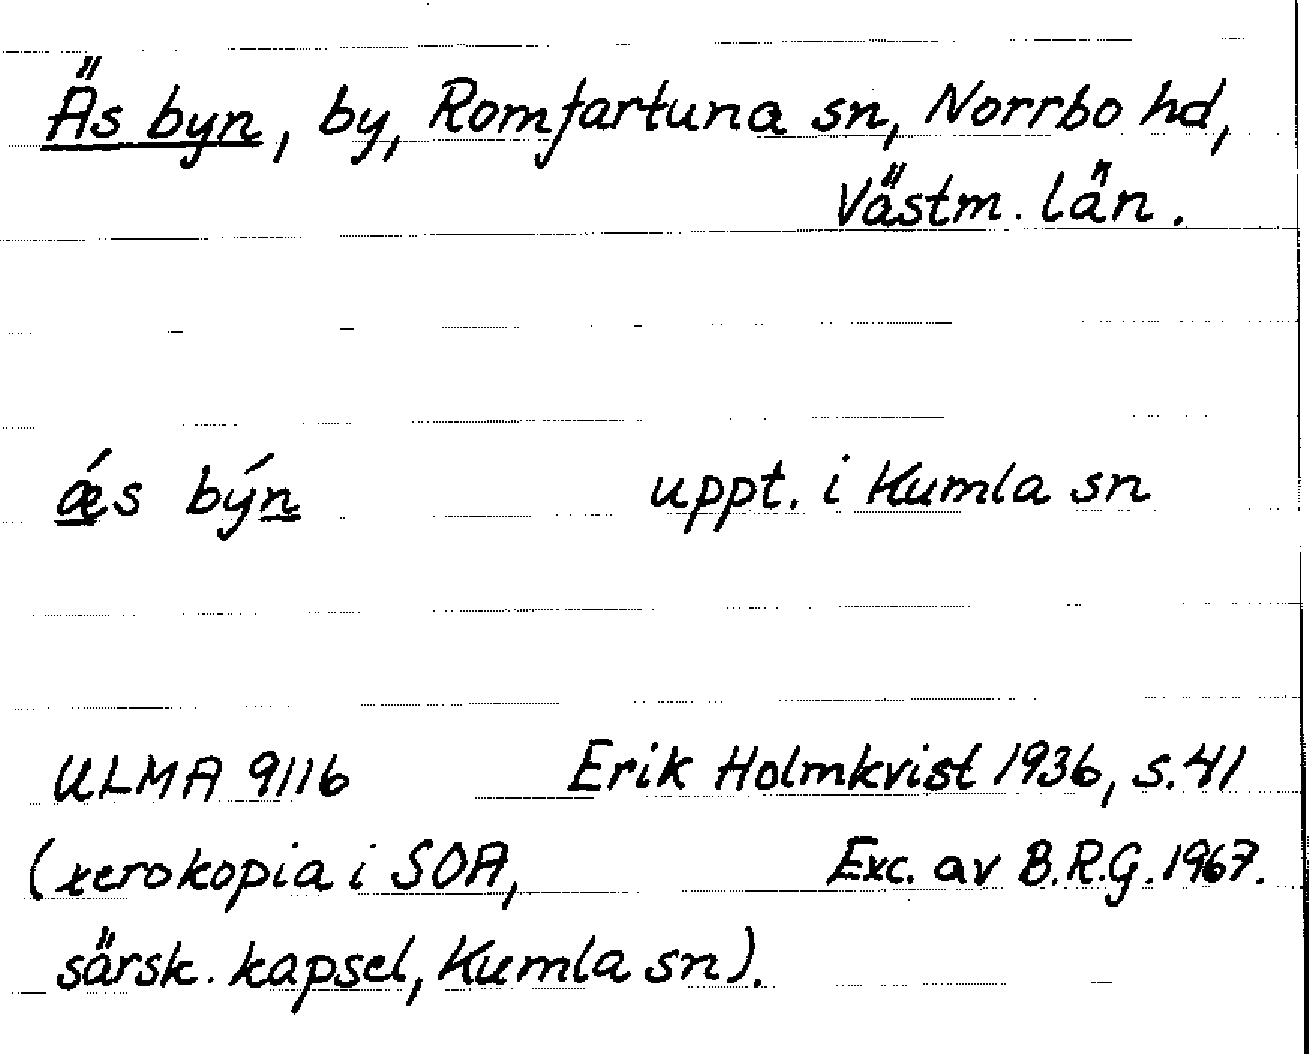 Äs byn, by, Romfartuna sn, Norrbo hd,
Västm. län.
ǽs býn uppt. i Kumla sn
ULMA 9116 Erik Holmkvist 1936, s. 41
(xerokopia i SOA, Exc. av B.R.G. 1967.
särsk. kapsel, Kumla sn).